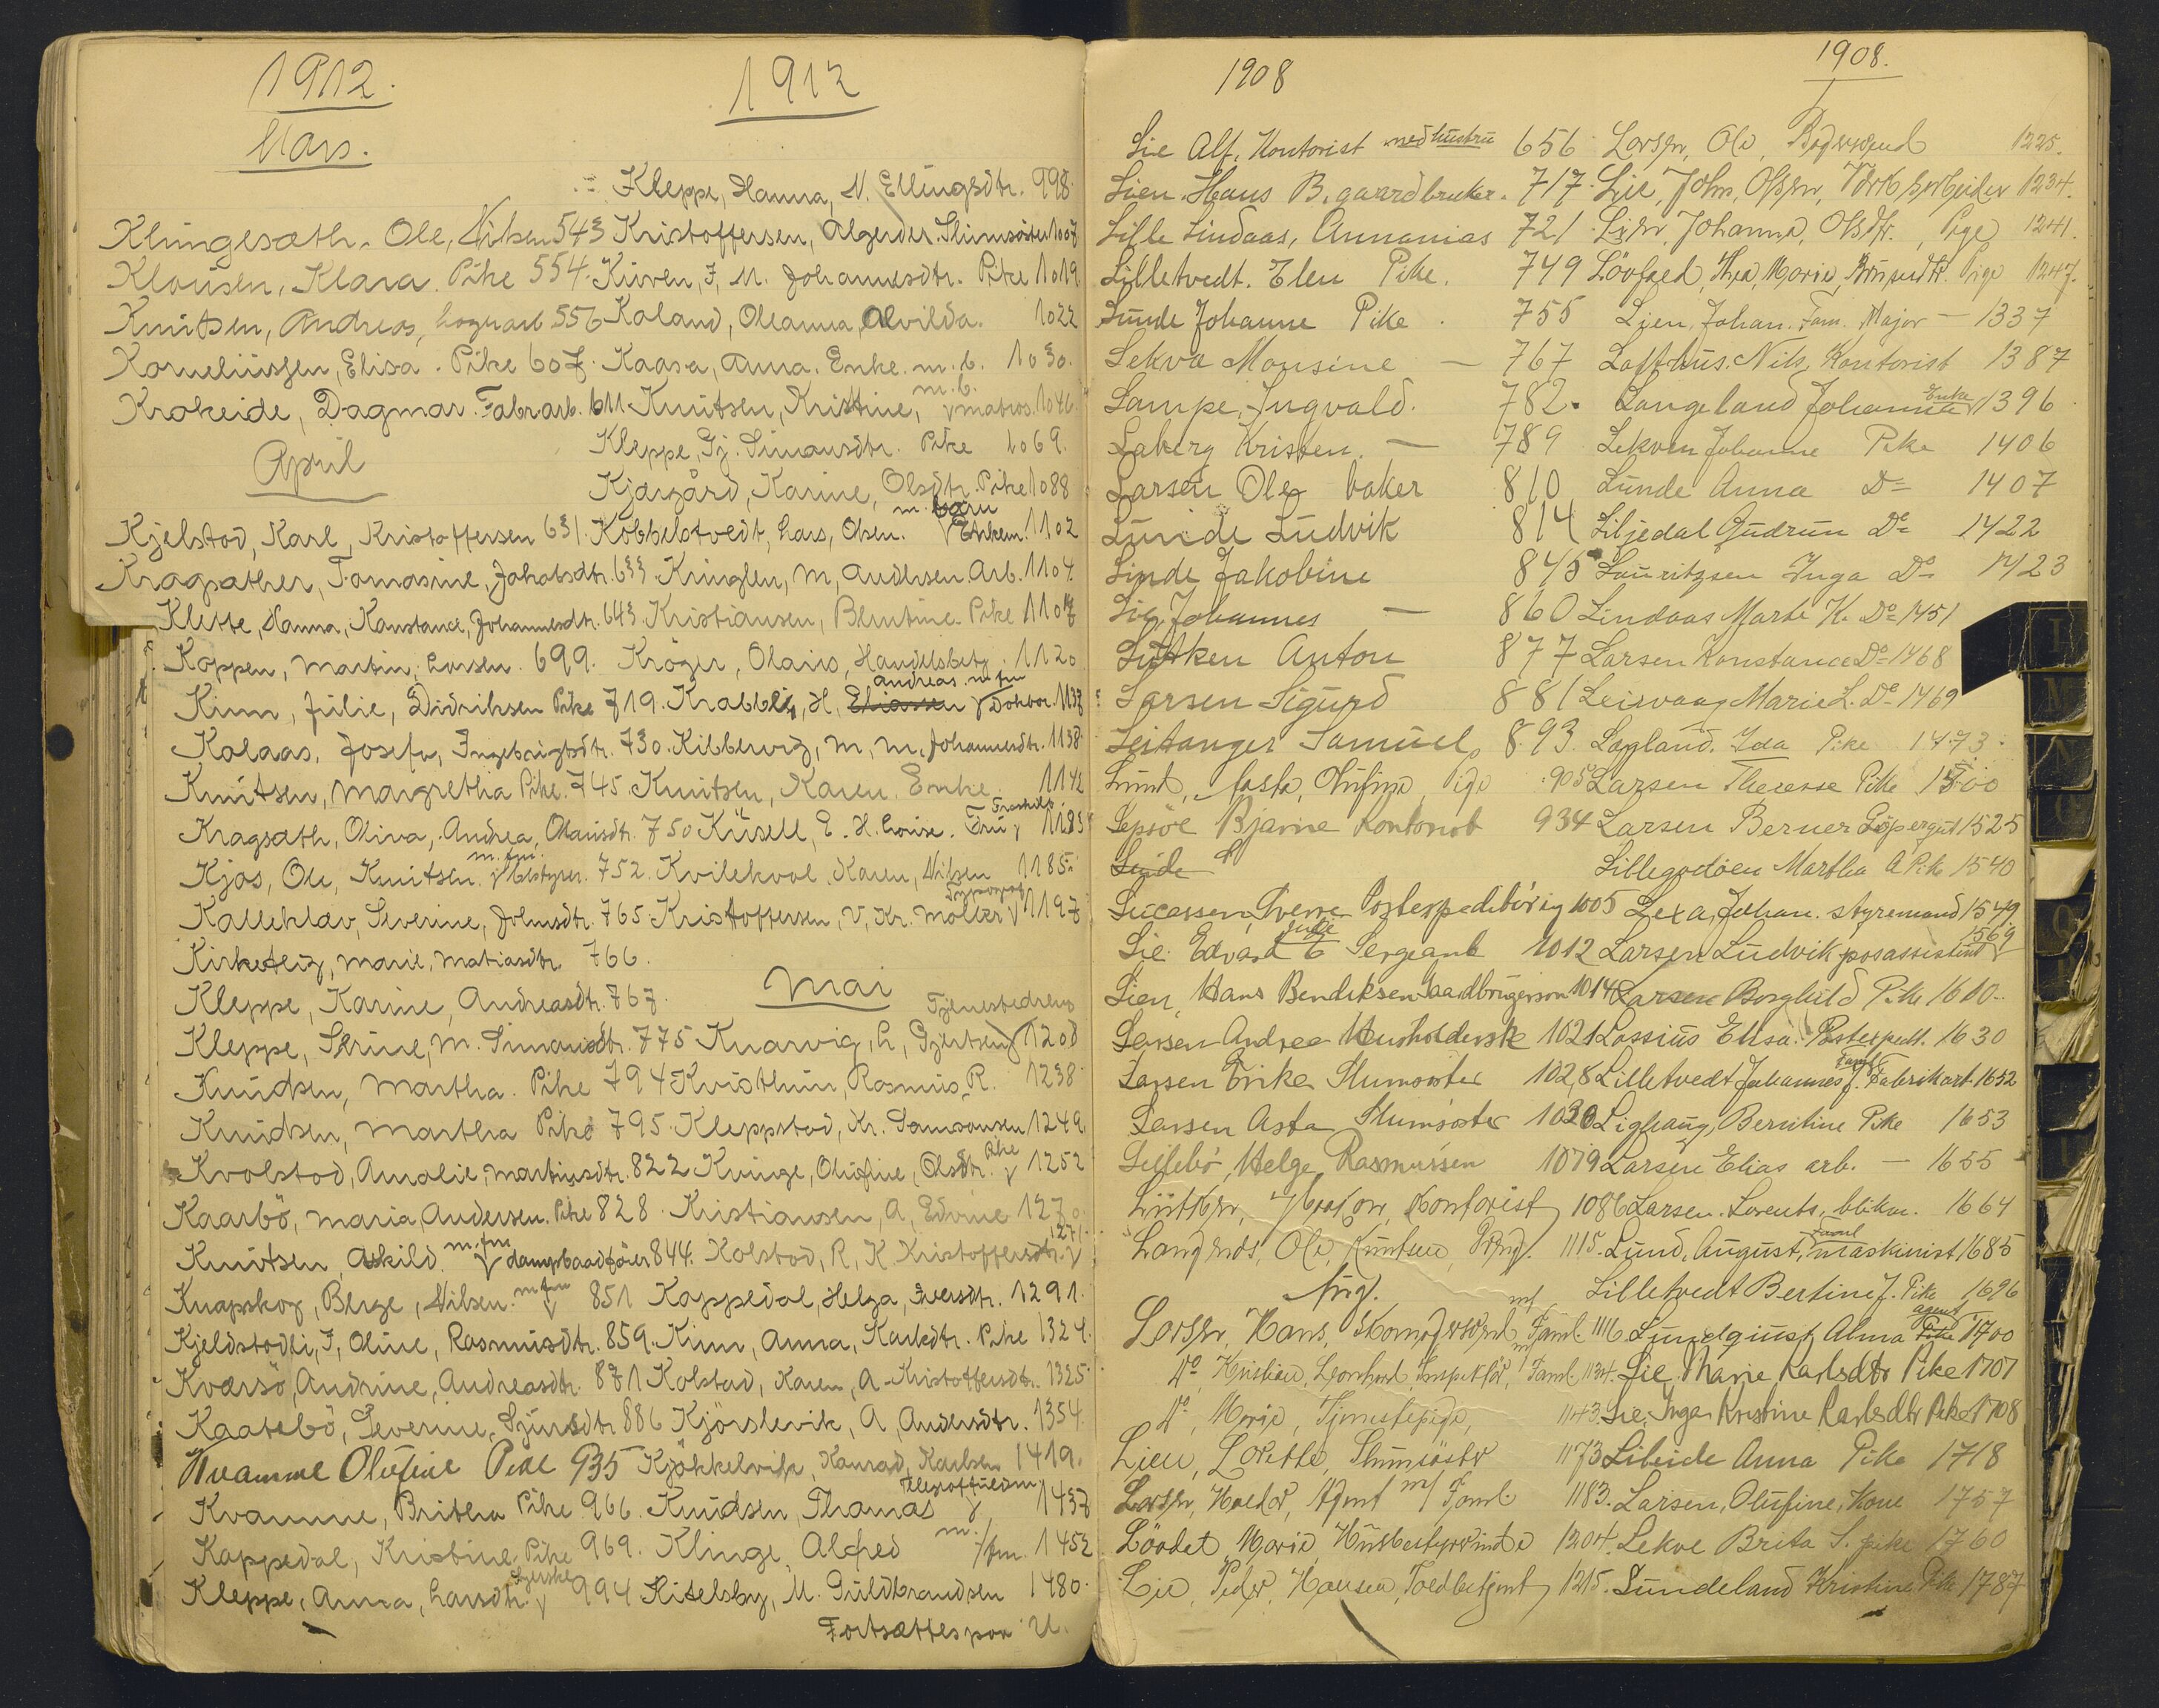 1912.
Mars.
Klingesæth, Ole, Nilsen 543
Klausen, Klara. Pike 554.
Knutsen, Andreas, bognarb 556
Korneliussen, Elisa. Pike 607.
Krokeide, Dagmar. Fabr.arb. 611
April
Kjelstad, Karl, Kristoffersen 631.
Kragsæther, Tomasine, Jakobsdtr. 633
Klette, Hanna, Konstance, Johannesdtr. 643
Koppen, Martin, Larsen. 699.
Kinn, Julie, Didriksen Pike 719.
Kolaas, Josefa, Ingebrigtsdtr. 730.
Knutsen, Margretha Pike. 745.
Kragsæth, Oliva, Andrea, Olausdtr. 750
Kjos, Ole, Knutsen. m. fm. 752.
Kalleklev, Severine, Johnsdtr. 765
Kirketeig, Marie, Matiasdtr. 766.
Kleppe, Karine, Andreasdtr. 767.
Kleppe, Strine, M. Simonsdtr. 775
Knudsen, Martha. Pike 794
Knudsen, Martha Pike 795.
Kvolstad, Amalie, Martinsdtr. 822
Kaarbö, Maria, Andersen. Pike 828.
Knutsen, Askild. m. fm dampbaadfører 844.
Knapskog, Berge, Nilsen. m. fm 851
Kjeldstadli, J, Oline, Rasmusdtr. 859.
Kværsö, Andrine, Andreasdtr. 871
Kaatebö, Severine, Sjursdtr 886
Kvamme Olufine Pike 935
Kvamme, Britha Pike 966.
Kappedal, Kristine, Pike 969.
Kleppe, Anna, Larsdtr. 994
1912
Kleppe, Hanna, N. Ellingsdtr. 998.
Kristoffersen, Algerder. Slumsöster 1007
Kurven, J, M. Johannesdtr. Pike 1019
Koland, Oleanna, Alvilda. 1022
Kaasa, Anna. Enke. m. b. 1030.
Knutsen, Kristine, m. b. matros. 1046.
Kleppe, Gj. Simonsdtr. Pike 1069.
Kjærgård, Karine, Olsdtr. Pike 1088
Kobbeltvedt, Lars, Olsen. m. børn Enkem. 1102
Kringlen, M, Andersen Arb. 1104.
Kristiansen, Berntine Pike 1107
Kröger, Olaus, Handelsbetj. 1120
Krabbe, H, Andreas m fm Doktor. 1137
Kibbervig, M, M, Johannesdtr. 1138
Knutsen, Karen Enke 1142
Küsell, E. H. Louise. Fru 1183
Kvilekval. Karen, Nilsen 1185.
Kristoffersen, V. Kr. Möller Typograf 1197
Mai
Knarvig, L, Gjertsen Tjenestedreng 1208
Kvisthun, Rasmus, R. 1238
Kleppstad, Kr. Samsonsen 1249.
Kvinge, Olufine, Olsdtr. Pike 1252
Kristiansen, A, Edvine 1270
Kolstad, R, K Kristoffersdtr. 1271.
Kappedal, Helga, Iversdtr. 1291.
Kinn, Anna, Karlsdtr. Pike 1324.
Kolstad, Karen, A. Kristoffersdtr. 1325.
Kjörslevik, A, Andersdtr. 1354.
Kjökkelvik, Konrad, Karlsen 1419.
Knudsen, Thomas 1437
Klinge, Alfred m. fm. 1452
Kitelsby, M. Guldbrandsen 1480.
Fortsættes paa U.
1908
Lie Alf. Kontorist med hustru 656
Lien. Hans B. gaardbruker. 717.
Lille Lindaas, Annanias 721.
Lilletvedt. Elen Pike. 749
Lunde Johanne Pike. 755
Lekva Monsine — 767
Lampe, Ingvald. 782.
Laberg Kristen. — 789
Larsen Ole baker 810
Lunde Ludvik 814
Linde Jakobine 845
Lie, Johannes — 860
Lütken Anton 877
Larsen Sigurd 881
Leitanger Samuel 893.
Lund, Aasta, Olufine Pige 905
Lepsöe Bjarne Kontorist 934
Lucassen, Sverre Postexpeditör 1005
Lie. Edvard E Sergeant 1012
Lien, Hans Bendiksen Gaardbrugerson 1014
Larsen Andrea Husholderske 1021
Larsen Erika Slumsöster 1028
Larsen Asta Slumsöster 1030
Lillebö, Helge Rasmussen 1079
Lütken, Haakon, Kontorist 1086
Langenes Ole Knutsen, Dreng. 1115.
Aug.
Larsen, Hans, Skomagersvend m/ Faml. 1116
Do Kristian, Leonhard, Inspektör, m/ Faml. 1134.
Do, Marie, Tjenestepige, 1143.
Lien, Lovette, Slumsöster 1173
Larsen, Halfdr, Agent m/ Faml. 1183.
Lövdet, Marie, Husbestyrerinde 1204.
Lie, Peder, Hansen, Toldbetjent 1215.
1908.
Larsen, Ole, Bagersvend 1225.
Lie, John, Olsen, Værkstarbeider 1234.
Lien, Johanna, Olsdtr., Pige 1241.
Lövfald, Thea, Marie, Pige 1247.
Lien, Johan. Fam. Major — 1337
Lofthus. Nils, Kontorist 1387
Langeland Johanne Enke 1396
Lekven Johanne Pike 1406
Lunde Anna Do 1407
Liljedal Gudrun Do 1422
Lauritzen Inga Do 1423
Lindaas Marte K. Do 1451
Larsen Konstance Do 1468
Leisvaag Marie L. Do 1469
Lapland. Ida Pike 1473.
Larsen Therese Pike 1500
Larsen Berner Löpergut 1525
Lillegodøen Martha A Pike 1540
Lexa, Johan. styremand 1549.
Larsen Ludvik posassistent 1569
Larsen Borghild Pike 1610.
Lassius Elisa. Postexped. 1630
Lilletvedt Johannes J. Faml Fabrikarb. 1652
Lighaug, Berntine Pike 1653
Larsen Elias arb. — 1655
Larsen. Lorents, blikm. 1664
Lund, August, Faml maskinist 1685
Lilletvedt Bertine J. Pike 1696
Lundqiust Alma agent 1700
Lie, Marie Karlsdtr Pike 1707
Lie, Inga Kristine Karlsdtr Pike 1708
Libeide Anna Pike 1718
Larsen, Olufine, Kone 1757
Lekve Brita S. pike 1760
Lundeland Kristine Pike 1787
L
M
N
O